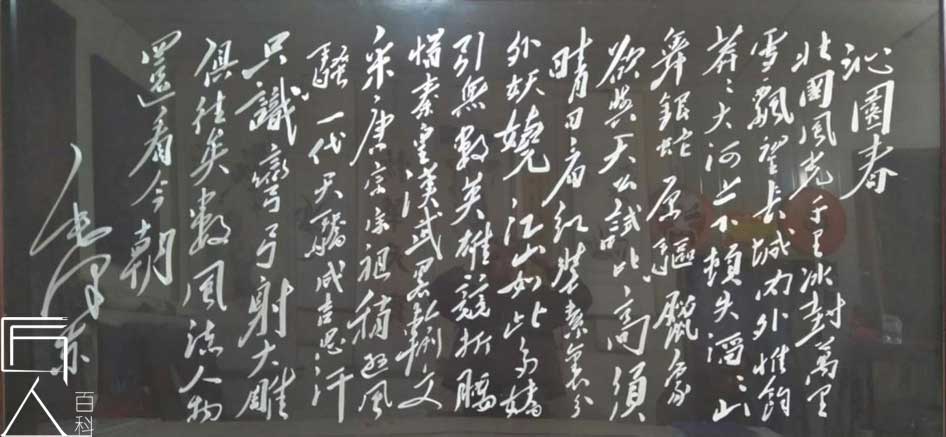 沁園春
北國風光千里冰封萬里
雪飄望長城內外惟餘
莽々大河上下頓失滔々山
舞銀蛇原驅臘象
欲與天公試比高須
晴日看紅裝素裹分
外妖嬈江山如此多嬌
引無數英雄競折腰
惜秦皇漢武略輸文
采唐宗宋祖稍遜風
騷一代天驕成吉思汗
只識彎弓射大雕
俱往矣數風流人物
還看今朝
毛澤東
百科